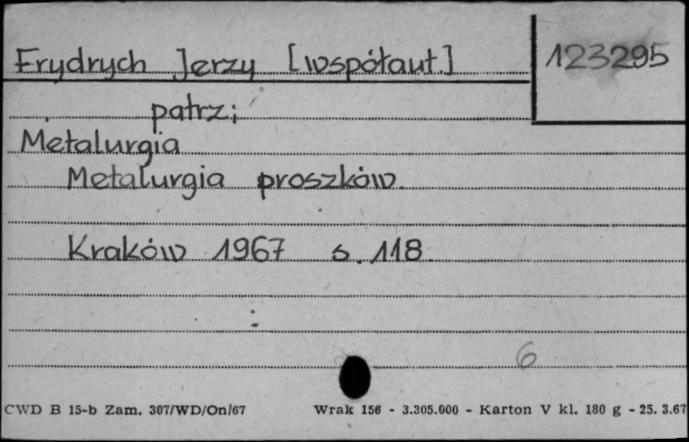 Frydrych Jerzy [współaut.] 123295
patrz:
Metalurgia
Metalurgia proszków.
Kraków 1967 s. 118
6
CWD B 15-b Zam. 307/WD/On/67 Wrak 156 - 3.305.000 - Karton V kl. 180 g - 25. 3.67